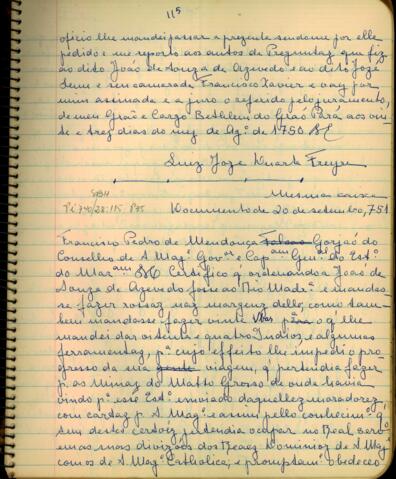 115
oficio lhe mandei passar e prezente sendome por elle
pedido e me reporto aos autos de Preguntas que fiz
ao dito João de Souza de Azevedo e ao dito Joze
Leme e seu camerada Francisco Xavier e vay por
mim assinada e a juro o referido pelo juramento,
de meu Gráo e Cargo Bethlem do Gráo Pará aos vin-
te e trez dias do mez de Ag.º de 1750
Luiz Joze Duarte Freyre
Mesma caixa
Documento de 20 de setembro, 751
Francisco Pedro de Mendonça Gorjaõ do
Concelho de S. Mag.e Gov.or e Cap.am Gen.al do Est.º
do Mar.am Certifico q' ordenando a João de
Souza de Azevedo fosse ao Rio Mad.ra e mandas-
se fazer rossas nas margens delle, como tam-
bem mandasse fazer vinte p.ª o q' lhe
mandei dar oitenta e quatro Indios, e algumas
ferramentas, p.ª cujo effeito lhe impedi o pro-
gresso da sua viagem, q' pertendia fazer
p.ª as Minas do Matto Grosso de onde havia
vindo p.ª esse Est.º enviado daquelles moradores,
com cartas p.ª S. Mag.e e assim pello conhecim.to q'
tem destes certoiz, pertendia ocupar no Real serv.º
em as mais divizoes dos Reaes Dominios de S. Mag.e
com os de S. Mag.e Catholica; e promptam.te obedeceo